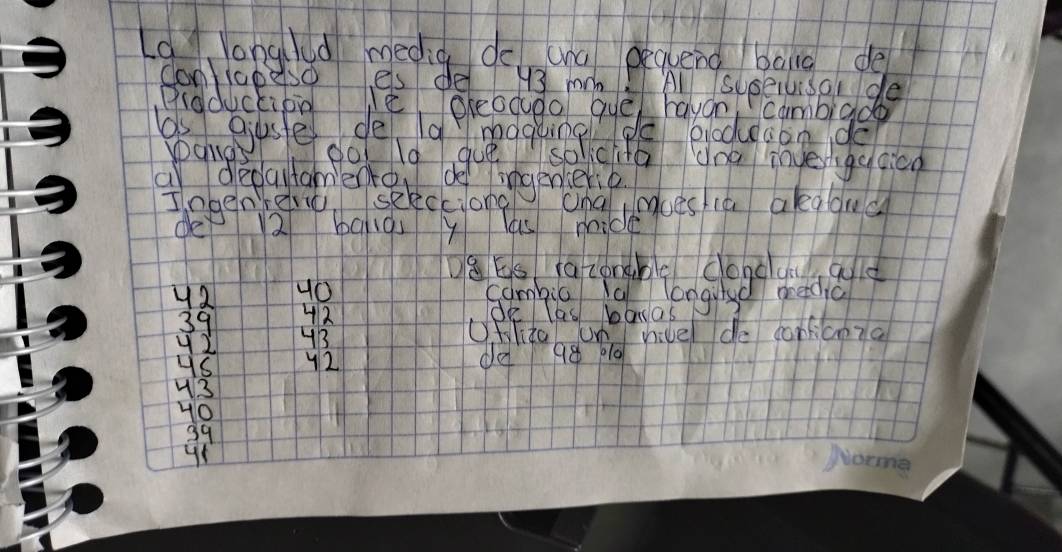 La longitud media de una pequeña barra de
contrapeso es de 43 mm. Al supervisor de
producción le preocupa que hayan cambiado
los ajustes de la maquina de producción de
barras por la que solicita una investigación
al departamento de ingenieria.
Ingenieria selecciona una muestra aleatoria
de 12 barras y las mide
D8 Es razonable concluir que
cambio la longitud media
de las barras
Utiliza un nivel de confianza
de 98 %
42 40
39 42
42 43
45 42
43
40
39
41
Norma